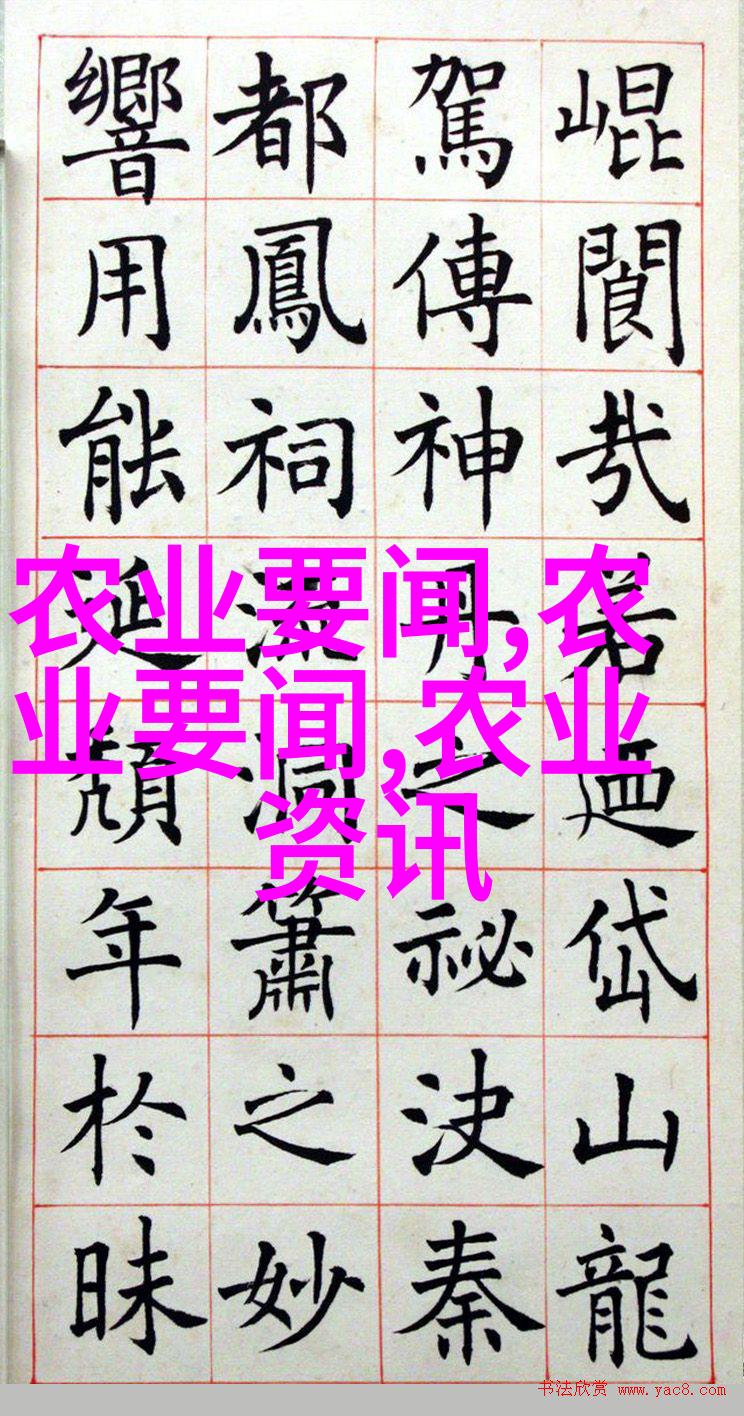 崐閬㦲若迺岱山龍
駕傳神丹之祕決秦
都鳳祠流洞簫之妙
響用能延頹年於昧
农业要闻,农
业要闻,农业
资讯
书法欣赏 www.yac8.com